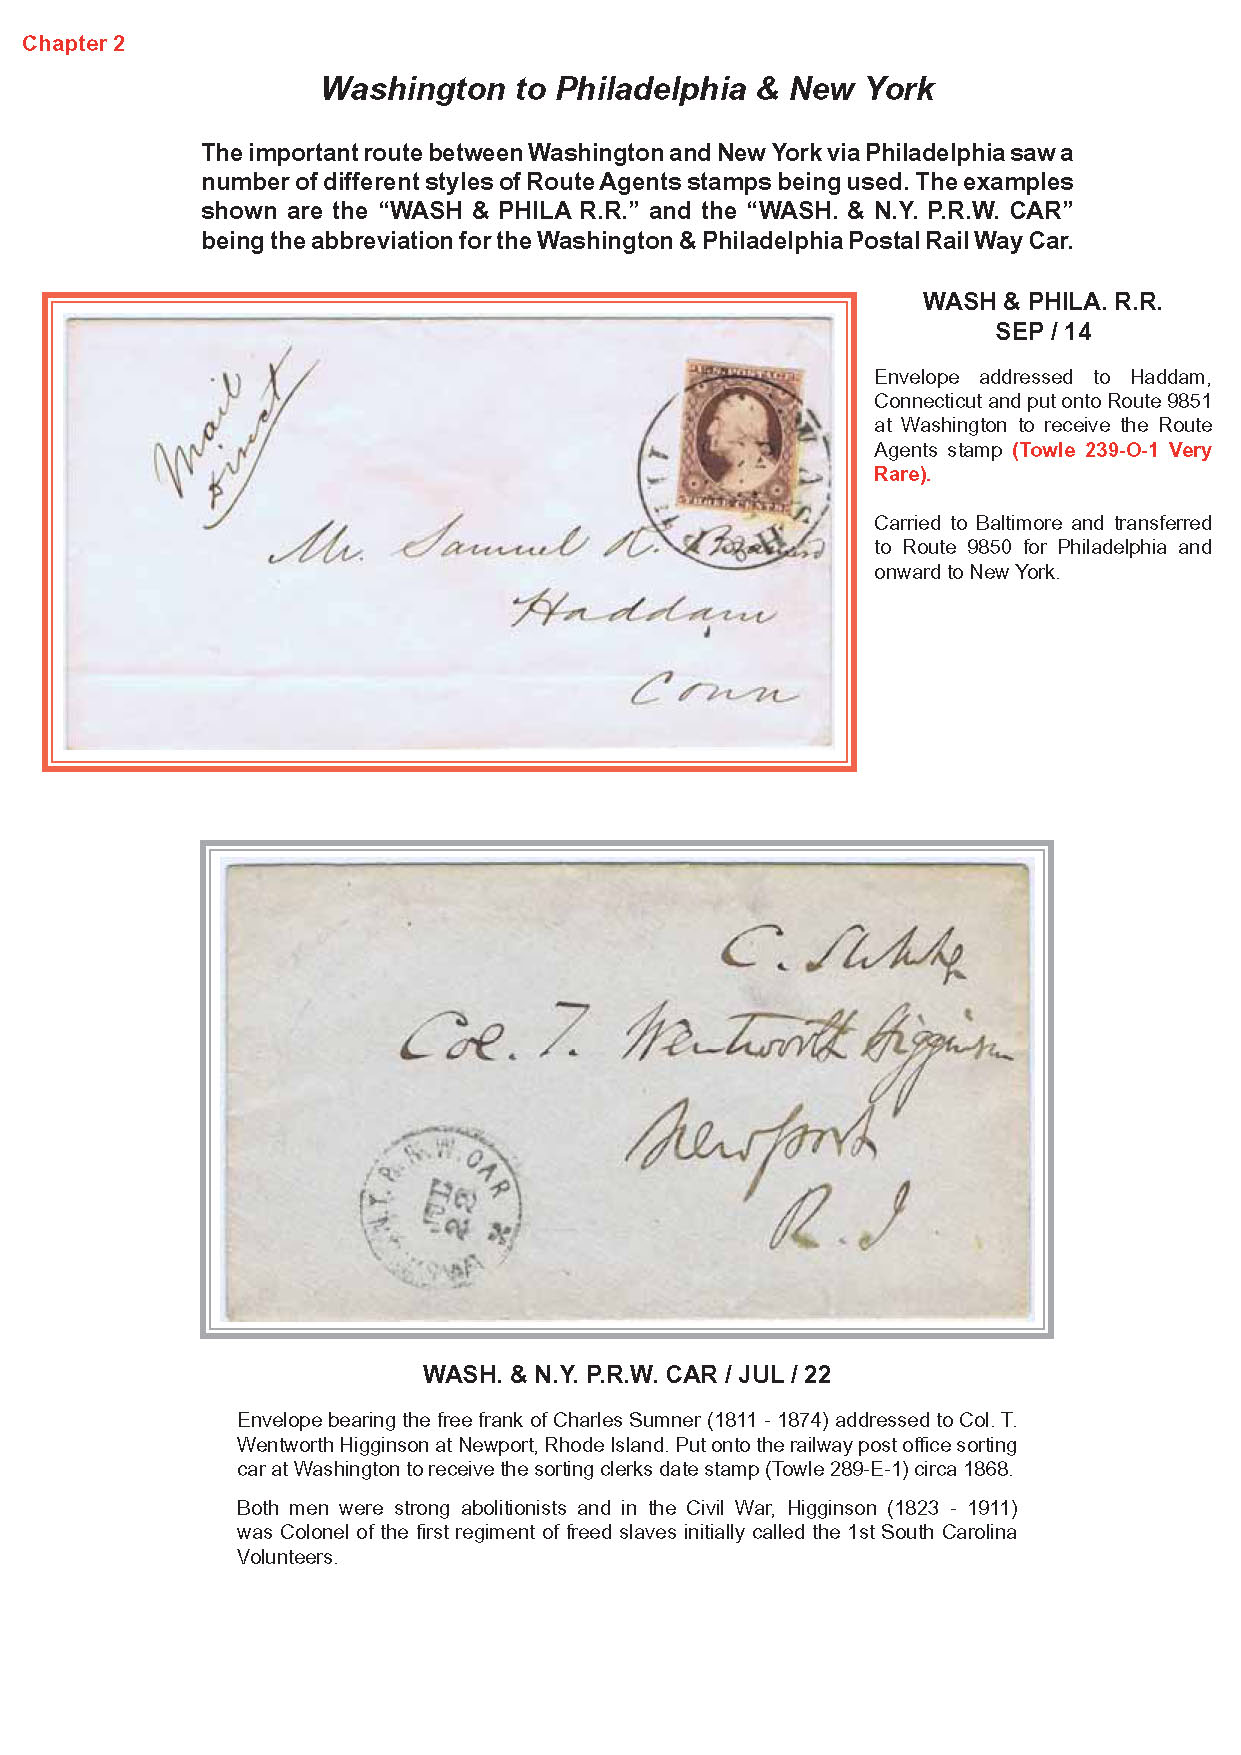 Chapter 2
Washington to Philadelphia & New York
The important route between Washington and New York via Philadelphia saw a
number of different styles of Route Agents stamps being used. The examples
shown are the “WASH & PHILA R.R.” and the “WASH. & N.Y. P.R.W. CAR”
being the abbreviation for the Washington & Philadelphia Postal Rail Way Car.
Mail
direct
THREE CENTS
WASH
Mr. Samuel R.
Haddam,
Conn
WASH & PHILA. R.R.
SEP / 14
Envelope addressed to Haddam,
Connecticut and put onto Route 9851
at Washington to receive the Route
Agents stamp (Towle 239-O-1 Very
Rare).
Carried to Baltimore and transferred
to Route 9850 for Philadelphia and
onward to New York.
C.
Col. T. Wentworth Higginson
Newport
R.I.
N.Y. P.R.W. CAR
JUL
22
WASH. & N.Y. P.R.W. CAR / JUL / 22
Envelope bearing the free frank of Charles Sumner (1811 - 1874) addressed to Col. T.
Wentworth Higginson at Newport, Rhode Island. Put onto the railway post office sorting
car at Washington to receive the sorting clerks date stamp (Towle 289-E-1) circa 1868.
Both men were strong abolitionists and in the Civil War, Higginson (1823 - 1911)
was Colonel of the first regiment of freed slaves initially called the 1st South Carolina
Volunteers.